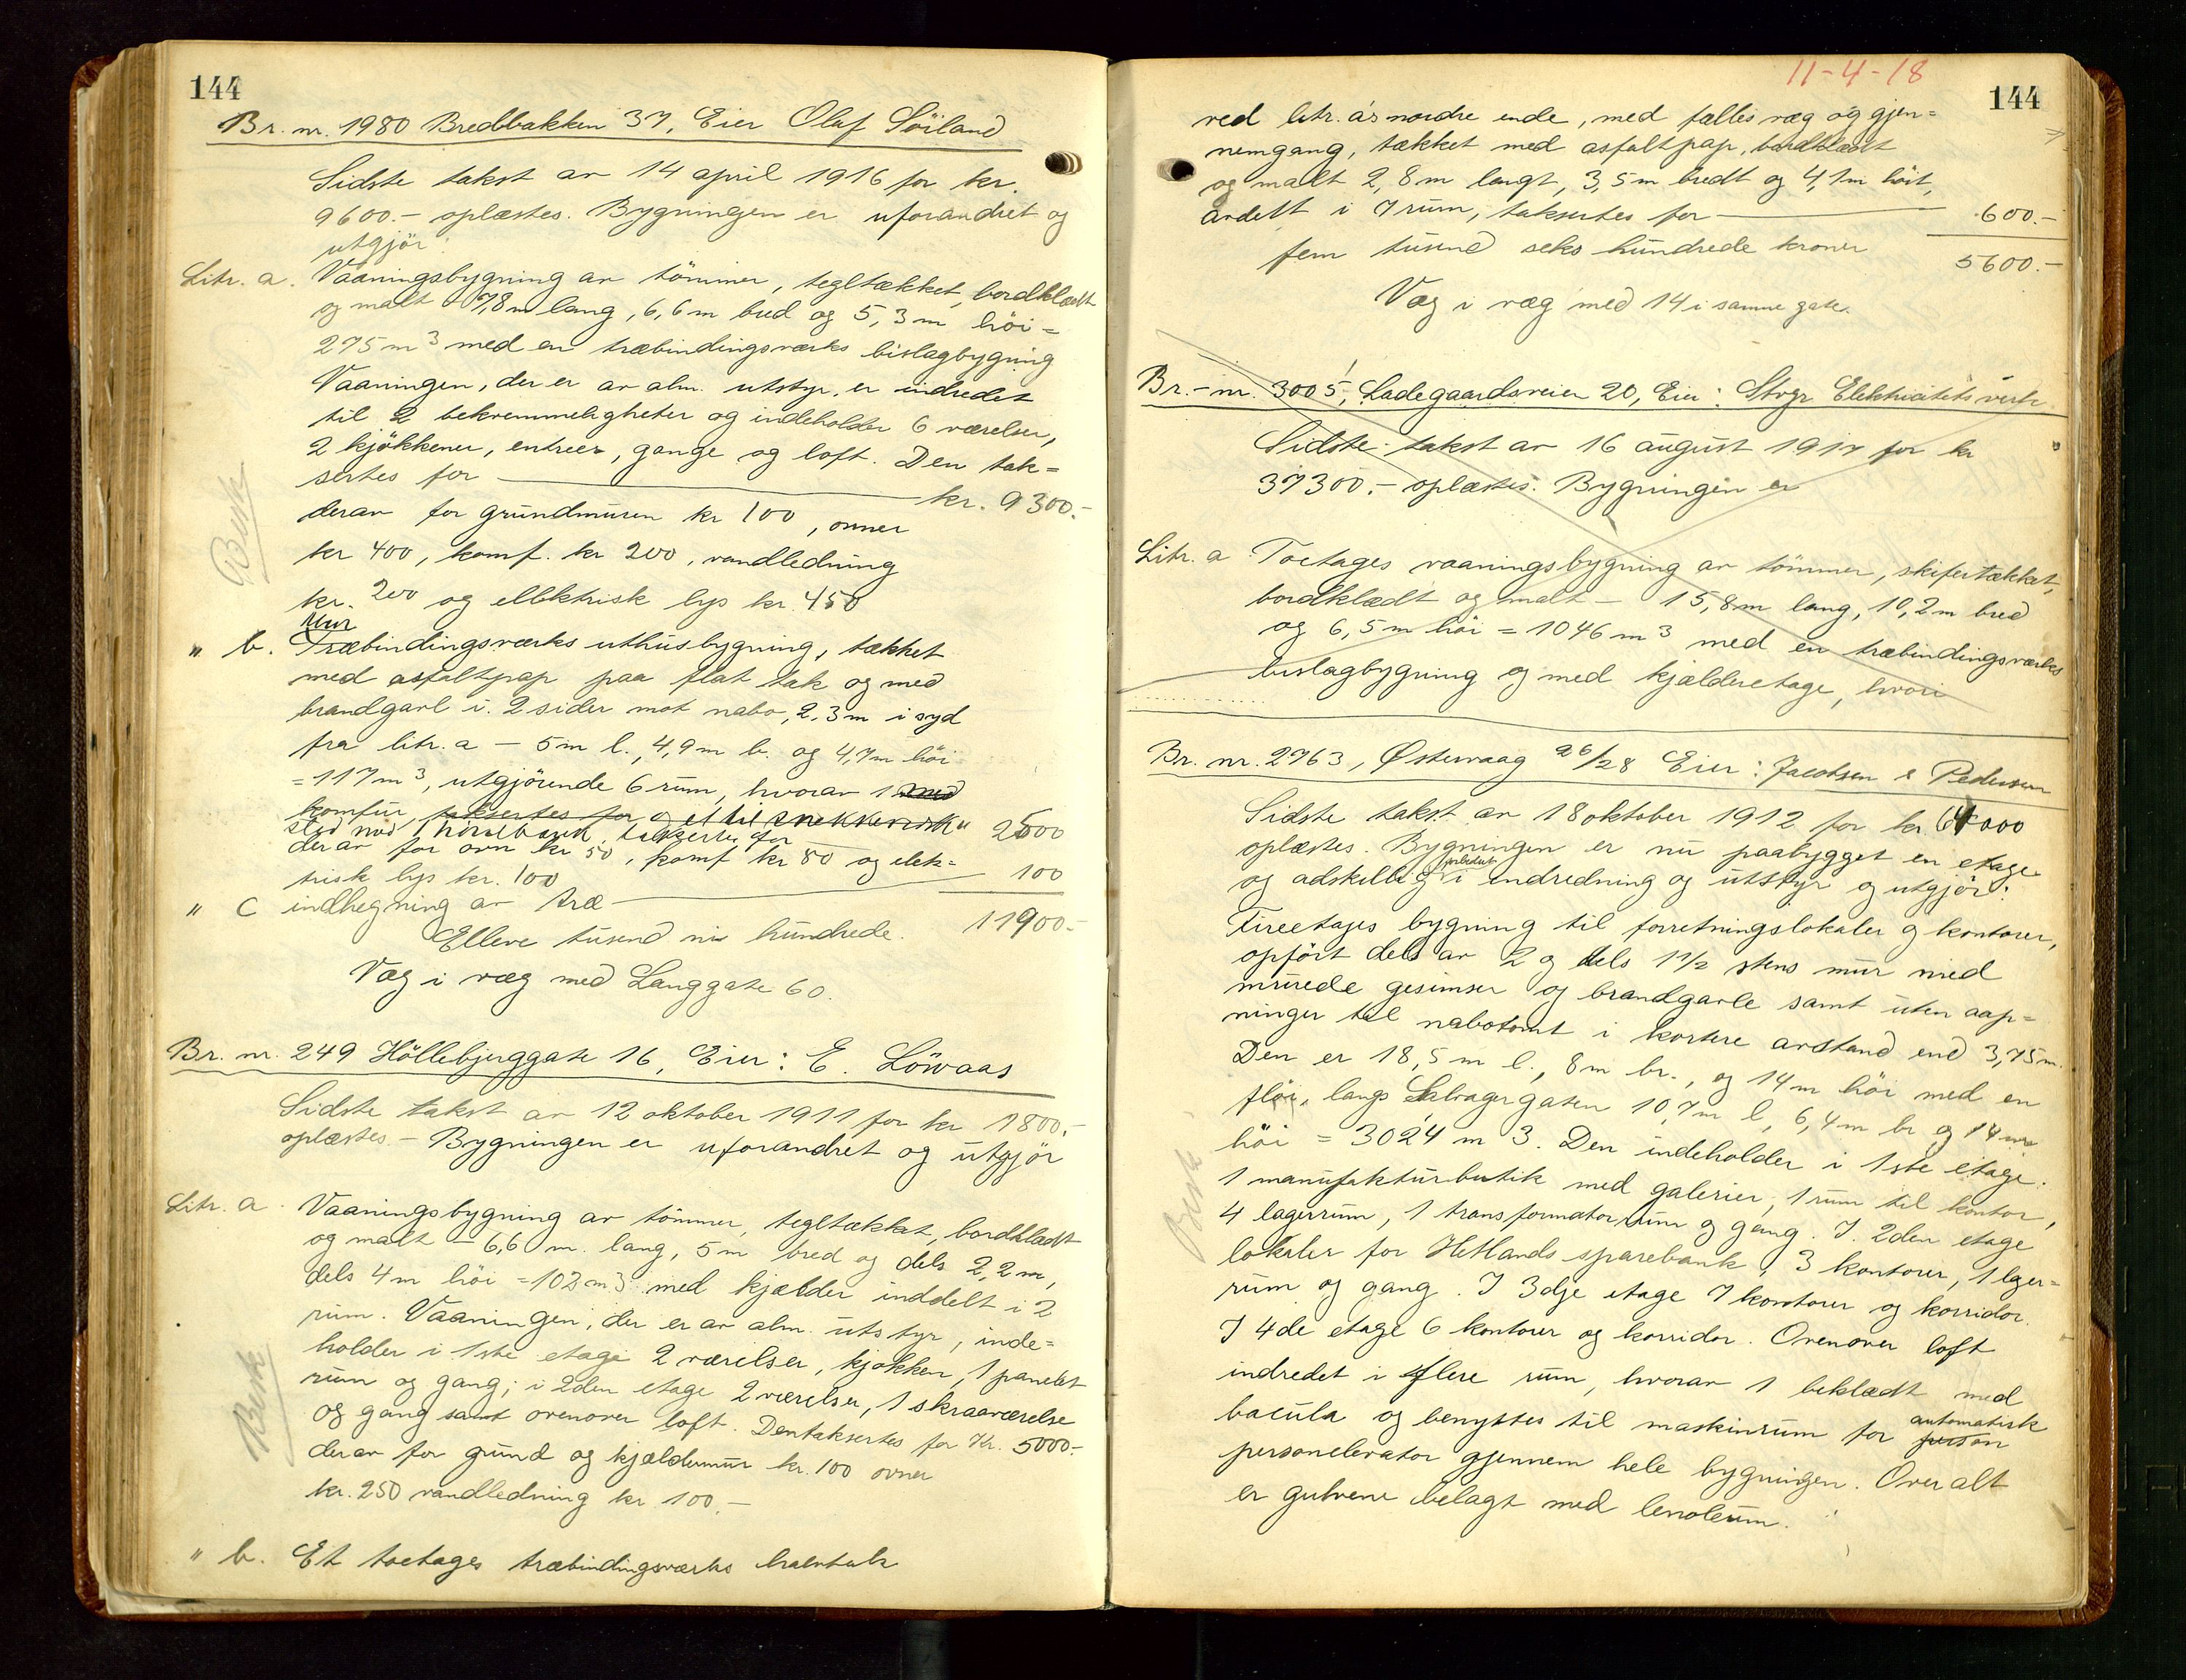 144
Br. nr. 1980 Bredbakken 37, Eier Olaf Söiland
Sidste takst av 14 april 1916 for kr.
9600.- oplæstes. Bygningen er uforandret og
utgjör:
Litr. a. Vaaningsbygning av tömmer, tegltækket, bordklædt
og malt - 7,8 m lang, 6,6 m bred og 5,3 m höi =
275 m3 med en træbindingsværks bislagbygning
Vaaningen, der er av alm. utstyr, er indredet
til 2 bekvemmeligheter og indeholder 6 værelser,
2 kjökkener, entreer, gange og loft. Den tak=
sertes for kr. 9300.-
derav for grundmuren kr 100, ovner
kr 400, komf. kr 200, vandledning
kr. 200 og elektrisk lys kr. 450
Besk
Mur
" b. Træbindingsværks uthusbygning, tækket
med asfaltpap paa flat tak og med
brandgavl i 2 sider mot nabo, 2,3 m i syd
fra litr. a - 5 m l., 4,9 m b. og 4,7 m höi
= 117 m3, utgjörende 6 rum, hvorav 1 med
komfur, taksertes for og et til snekkerverk"
sted med 1 hövelbænk, taksertes for 2500
derav for ovn kr 50, komf kr 80 og elek=
trisk lys kr. 100
" C indhegning av træ 100
Elleve tusend ni hundrede. 11900.-
Væg i væg med Langgate 60.
Br. nr. 249 Höllebjerggate 16, Eier: E. Löwaas
Sidste takst av 12 oktober 1911 for kr 1800.-
oplæstes. - Bygningen er uforandret og utgjör
Litr. a. Vaaningsbygning av tömmer, tegltækket, bordklædt
og malt - 6,6 m. lang, 5 m bred og dels 2,2 m,
dels 4 m höi = 102 m3 med kjælder inddelt i 2
rum. Vaaningen, der er av alm. utstyr, inde=
holder i 1ste etage 2 værelser, kjökken, 1 panelet
rum og gang; i 2den etage 2 værelser, 1 skraaværelse
og gang samt ovenover loft. Den taksertes for Kr. 5000.-
derav for grund og kjældermur kr. 100 ovner
kr. 250 vandledning kr 100.-
Besk
" b. Et toetages træbindingsværks halvtak
11-4-18
144
ved litr. a's nordre ende, med fælles væg og gjen=
nemgang, tækket med asfaltpap, bordklædt
og malt 2,8 m langt, 3,5 m bredt og 4,1 m höit,
avdelt i 7 rum, taksertes for 600.-
fem tusend seks hundrede kroner 5600.-
Væg i væg med 14 i samme gate.
Br.-nr. 3005, Ladegaardsveien 20, Eier: Stvgr Elektricitetsverk
Sidste takst av 16 august 1917 for kr
37300.- oplæstes. Bygningen er
Litr. a Toetages vaaningsbygning av tömmer, skifertækket,
bordklædt og malt - 15,8 m lang, 10,2 m bred
og 6,5 m höi = 1046 m3 med en træbindingsværks
bislagbygning og med kjælderetage, hvori
Br. nr. 2763, Østervaag 26/28 Eier: Jacobsen & Pedersen
Sidste takst av 18 oktober 1912 for kr 64000
oplæstes. Bygningen er nu paabygget en etage
og adskillig forbedret i indredning og utstyr og utgjör:
Fireetages bygning til forretningslokaler og kontorer,
opfört dels av 2 og dels 1 1/2 stens mur med
murede gesimser og brandgavle samt uten aap=
ninger til nabotomt i kortere avstand end 3,75 m.
Den er 18,5 m l., 8 m br., og 14 m höi med en
flöi, langs Salvagergaten 10,7 m l, 6,4 m br og 14 m
höi = 3024 m 3. Den indeholder i 1ste etage.
1 manufakturbutik med galerier, 1 rum til kontor,
4 lagerrum, 1 transformatorrum og gang. I. 2den etage
lokaler for Hetlands sparebank, 3 kontorer, 1 lger=
rum og gang. I 3dje etage 7 kontorer og korridor.
I 4de etage 6 kontorer og korridor. Ovenover loft
indredet i flere rum, hvorav 1 beklædt med
bacula og benyttes til maskinrum for automatisk person
personelevator gjennem hele bygningen. Overalt
er gulvene belagt med lenoleum.
Besk